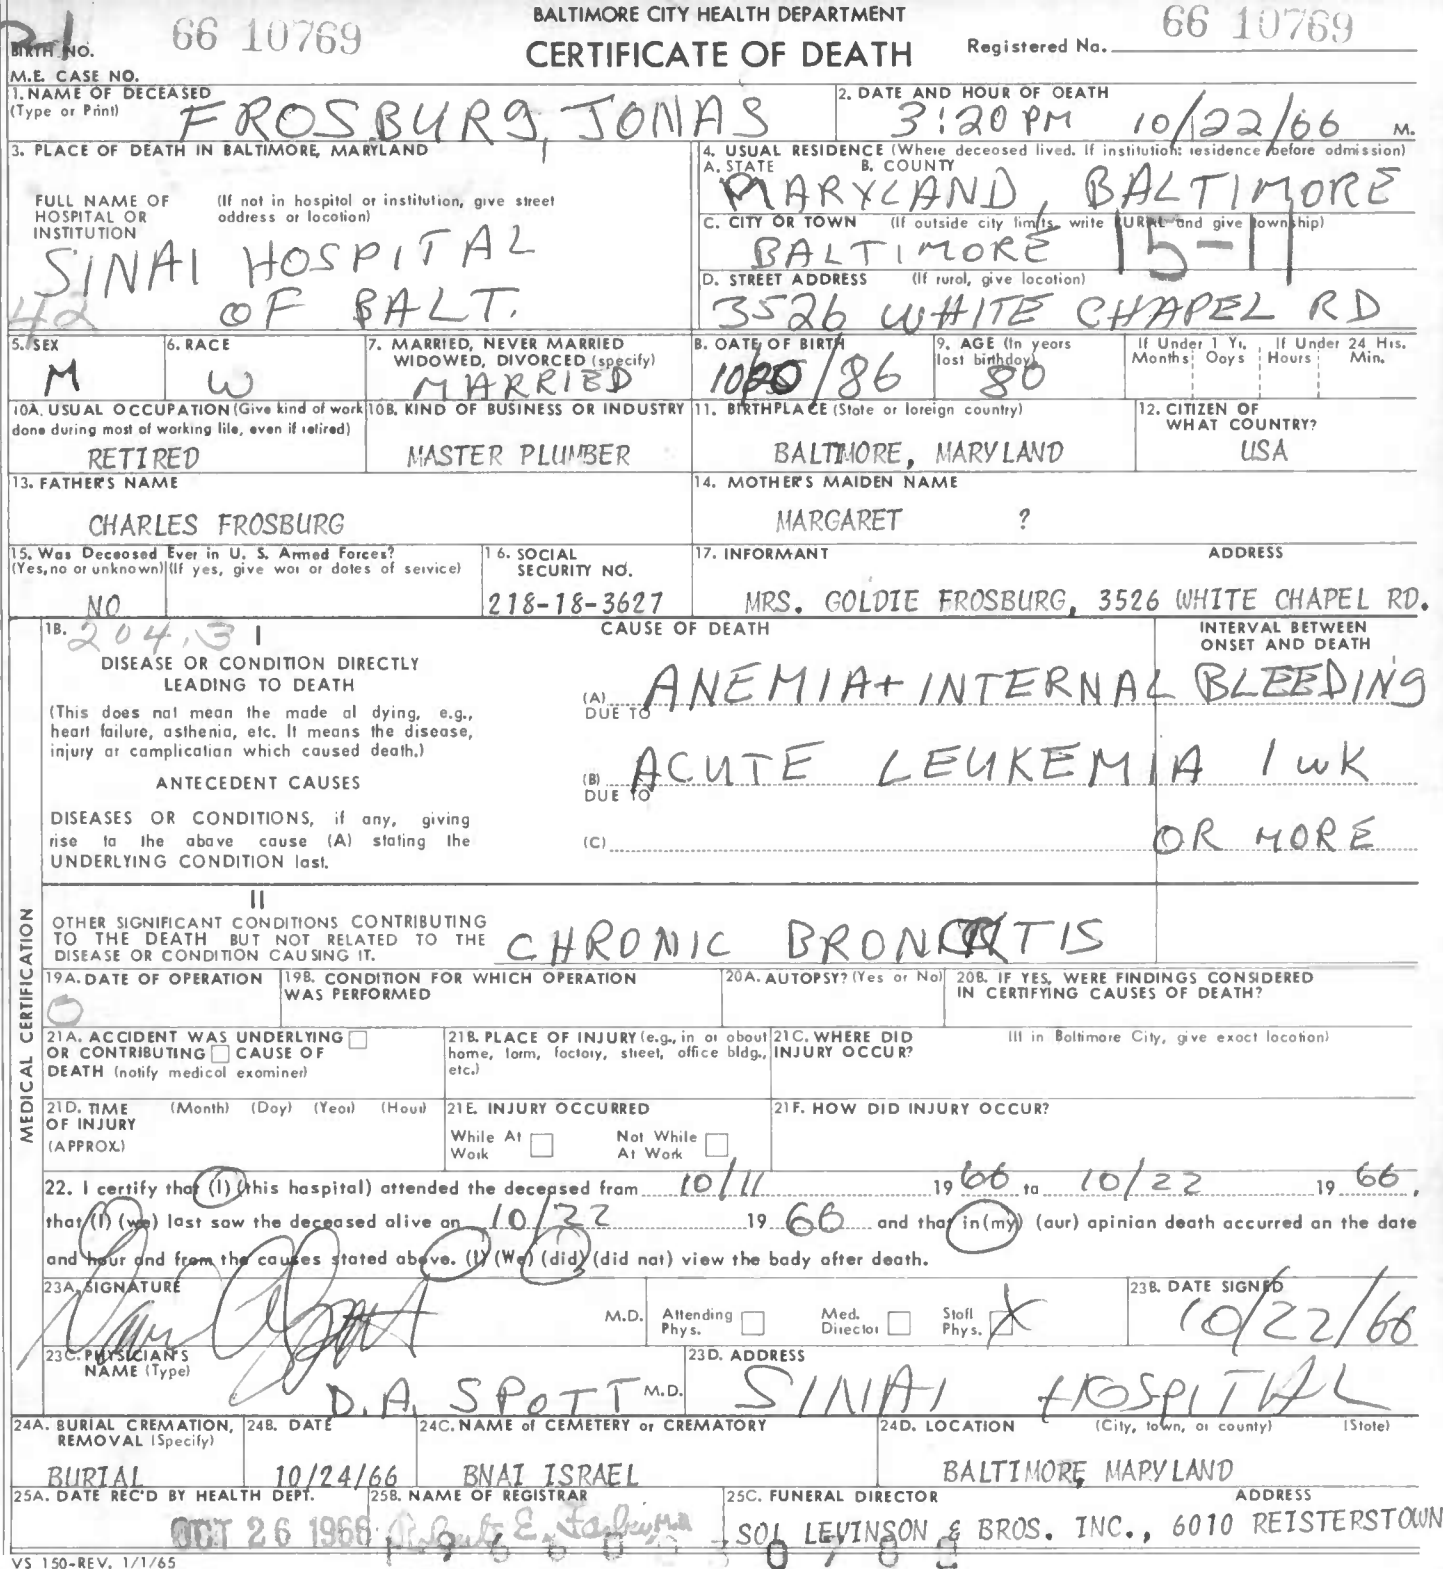 BALTIMORE CITY HEALTH DEPARTMENT
CERTIFICATE OF DEATH
BIRTH NO. 66 10769
Registered No. 66 10769
M.E. CASE NO.
1. NAME OF DECEASED
(Type or Print)
FROSBURG, JONAS
2. DATE AND HOUR OF DEATH
3:20 PM 10/22/66 M.
3. PLACE OF DEATH IN BALTIMORE, MARYLAND
FULL NAME OF HOSPITAL OR INSTITUTION
(If not in hospital or institution, give street address or location)
SINAI HOSPITAL
OF BALT.
42
4. USUAL RESIDENCE (Where deceased lived. If institution: residence before admission)
A. STATE B. COUNTY
MARYLAND, BALTIMORE
C. CITY OR TOWN (If outside city limits, write RURAL and give township)
BALTIMORE 15-11
D. STREET ADDRESS (If rural, give location)
3526 WHITE CHAPEL RD
5. SEX
M
6. RACE
W
7. MARRIED, NEVER MARRIED
WIDOWED, DIVORCED (specify)
MARRIED
8. DATE OF BIRTH
/86
9. AGE (In years last birthday)
80
If Under 1 Yr. Months Days
If Under 24 Hrs. Hours Min.
10A. USUAL OCCUPATION (Give kind of work done during most of working life, even if retired)
RETIRED
10B. KIND OF BUSINESS OR INDUSTRY
MASTER PLUMBER
11. BIRTHPLACE (State or foreign country)
BALTIMORE, MARYLAND
12. CITIZEN OF WHAT COUNTRY?
USA
13. FATHER'S NAME
CHARLES FROSBURG
14. MOTHER'S MAIDEN NAME
MARGARET ?
15. Was Deceased Ever in U. S. Armed Forces?
(Yes, no or unknown) (If yes, give war or dates of service)
NO
16. SOCIAL SECURITY NO.
218-18-3627
17. INFORMANT ADDRESS
MRS. GOLDIE FROSBURG, 3526 WHITE CHAPEL RD.
MEDICAL CERTIFICATION
18. 204.3 I
CAUSE OF DEATH
INTERVAL BETWEEN ONSET AND DEATH
DISEASE OR CONDITION DIRECTLY
LEADING TO DEATH
(This does not mean the mode of dying, e.g.,
heart failure, asthenia, etc. It means the disease,
injury or complication which caused death.)
(A) ANEMIA + INTERNAL BLEEDING
DUE TO
ANTECEDENT CAUSES
(B) ACUTE LEUKEMIA 1 WK
DUE TO
DISEASES OR CONDITIONS, if any, giving
rise to the above cause (A) stating the
UNDERLYING CONDITION last.
(C) OR MORE
II
OTHER SIGNIFICANT CONDITIONS CONTRIBUTING
TO THE DEATH BUT NOT RELATED TO THE
DISEASE OR CONDITION CAUSING IT.
CHRONIC
19A. DATE OF OPERATION
0
19B. CONDITION FOR WHICH OPERATION WAS PERFORMED
20A. AUTOPSY? (Yes or No)
20B. IF YES, WERE FINDINGS CONSIDERED IN CERTIFYING CAUSES OF DEATH?
21A. ACCIDENT WAS UNDERLYING
OR CONTRIBUTING CAUSE OF
DEATH (notify medical examiner)
21B. PLACE OF INJURY (e.g., in or about home, farm, factory, street, office bldg., etc.)
21C. WHERE DID INJURY OCCUR?
(If in Baltimore City, give exact location)
21D. TIME OF INJURY (APPROX.)
(Month) (Day) (Year) (Hour)
21E. INJURY OCCURRED
While At Work
Not While At Work
21F. HOW DID INJURY OCCUR?
22. I certify that (I) (this hospital) attended the deceased from 10/11 19 66 to 10/22 19 66,
that (I) (we) last saw the deceased alive on 10/22 19 66 and that in (my) (our) opinion death occurred on the date
and hour and from the causes stated above. (I) (We) (did) (did not) view the body after death.
23A. SIGNATURE
M.D.
Attending Phys.
Med. Director
Staff Phys. X
23B. DATE SIGNED
10/22/66
23C. PHYSICIAN'S NAME (Type)
D.A. SPOTT M.D.
23D. ADDRESS
SINAI HOSPITAL
24A. BURIAL CREMATION, REMOVAL (Specify)
BURIAL
24B. DATE
10/24/66
24C. NAME of CEMETERY or CREMATORY
BNAI ISRAEL
24D. LOCATION (City, town, or county) (State)
BALTIMORE MARYLAND
25A. DATE REC'D BY HEALTH DEPT.
OCT 26 1966
25B. NAME OF REGISTRAR
Robert E. Farber, M.D.
25C. FUNERAL DIRECTOR ADDRESS
SOL LEVINSON & BROS. INC., 6010 REISTERSTOWN
VS 150-REV. 1/1/65